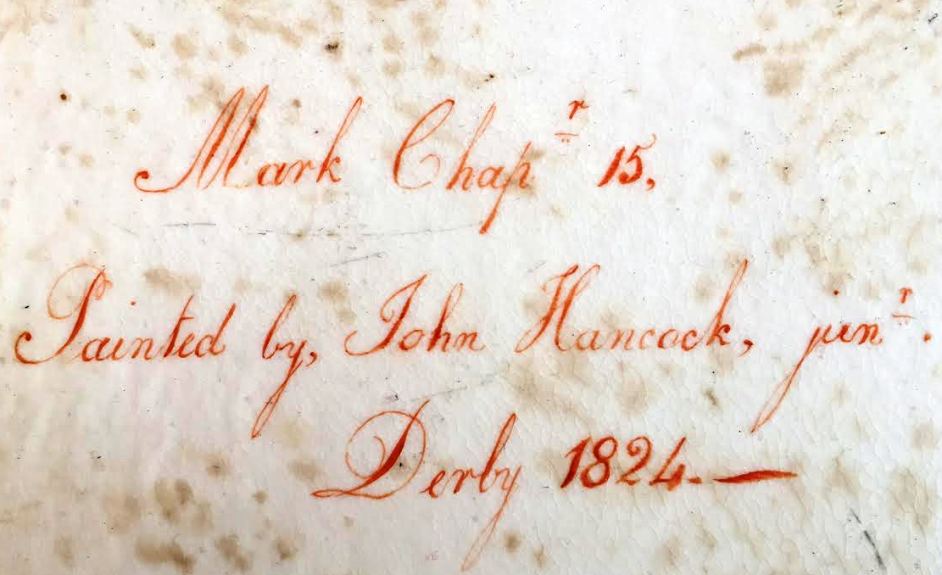 Mark Chapʳ 15,
Painted by, John Hancock, junʳ.
Derby 1824.—